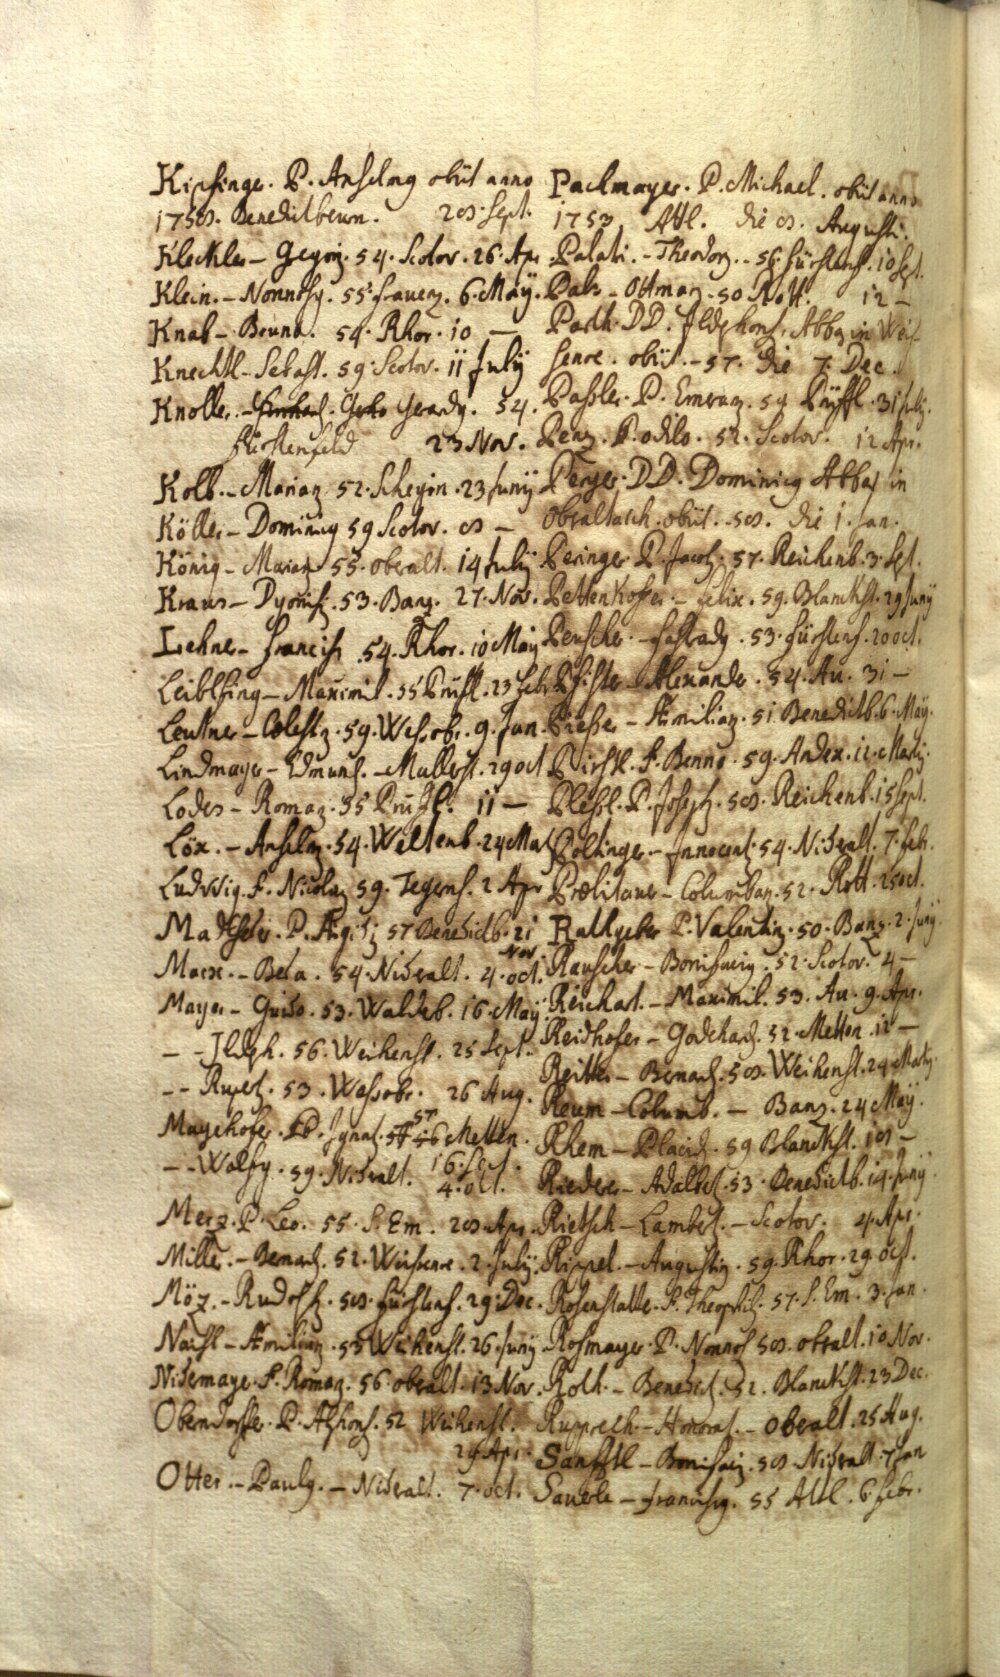 Kipfinger. P. Anselmg obiit anno
1758. Benedictbeurn. 28. Sept.
Kleckler – Gregoriz. 54. Scotor. 26. Apr.
Klein. – Nonnosg. 55. Frauenz. 6. Maÿ.
Knab – Bruno. 54. Rhor. 10 —
Knechtl – Sebast. 59. Scotor. 11 Julÿ
Knoller. – Gerardg. 54.
Fürstenfeld 23 Nov.
Kolb. – Marianz 52. Scheyrn. 23 Junÿ
Köller – Dominicg 59 Scotor. 8 —
König – Marianz 55. Oberalt. 14 Julÿ
Kraus – Dyonisz. 53. Banz. 27. Nov.
Lehner – Francisc. 54. Rhor. 10 Maÿ
Leiblfing – Maximil. 55 Prufl. 23 Febr.
Leutner – Cœlestz. 59. Wessobr. 9. Jan.
Lindmayer – Edmund. – Mallerst. 29 oct
Lodes – Romaz. 55 Prufl. 11 —
Löx. – Anselmz. 54. Weltenb. 24 Mart
Ludwig. F. Nicolaz 59. Tegerns. 2 Apr
Madlseder. P. Ægidz 57 Benedictb. 21
Nov.
Marx. – Beda. 54. Nideralt. 4. oct.
Mayer – Guido. 53. Waldeb. 16. Maÿ.
– – Ildeph. 56. Weihenst. 25 Sept.
– – Rupert. 53. Wessobr. 26 Aug.
Mayrhofer. P. Ignat. 57 Metten.
16. Oct.
– – Wolfg. 59. Nideralt. 4. oct.
Merz. P. Leo. 55. S. Em. 28. Apr.
Miller. – Bernard. 52. Weissenoe. 2. Julÿ.
Möz. – Rudolf. 58. Fürstenf. 29. Dec.
Naisl – Æmilianz. 53 Weihenst. 26. Junÿ
Nidermayr. F. Romaz. 56. Oberalt. 13 Nov.
Oberndorffer. P. Alphons. 52 Weihenst.
29 Apr.
Otter. – Paulg. – Nideralt. 7. oct.
Packmayer. P. Michael. obiit anno
1753 Attl. die 8. Augusti.
Palati. – Theodorz. – 56. Fürstenf. 10 Sept.
Pals – Ottmarz. 50 Rott. 12 –
Parth. DD. Ildephons. Abbaz in Weis-
senoe. obiit. – 57. die 7. Dec.
Passler. P. Emeramz. 59 Prüffl. 31 Julÿ.
Penz. P. Odilo. 52. Scotor. 12 Apr.
Perger. DD. Dominicg Abbas in
Obraltaich. obiit. – 58. die 1. Jan.
Peringer P. Jacob. 57. Reichenb. 3. Sept.
Pettenkofer. – Felix. 59. Blanckst. 29 Junÿ
Peuscher – Gastradg. 53. Fürstenf. 20 oct.
Pfister – Alexander. 54. Au. 31 –
Piesser – Æmilianz. 51 Benedictb. 6. Maÿ.
Pirstl. F. Benno. 59. Andex. 12. Martÿ.
Plessl. P. Josephz. 58. Reichenb. 15 Sept.
Poltinger. – Innocent. 54. Nideralt. 7. Febr.
Prælitauer – Columbanz. 52. Rott. 25 oct.
Rathgeber P. Valentinz. 50. Banz. 2. Junÿ
Rauscher – Bonifacig. 52. Scotor. 4 –
Reichart. – Maximil. 53. Au. 9. Apr.
Reidhofer – Godehard. 52. Metten. 12 –
Reitter – Bernard. 58. Weihenst. 24 Martÿ
Reum – Columb. – Banz. 24 Maÿ.
Rhem – Placid. 59 Blanckst. 18 –
Rieder – Adalbert. 53. Benedictb. 14. Junÿ
Rietsch – Lambert. – Scotor. 4. Apr.
Rippel. – Augustinz. 59. Rhor. 29 oct.
Rosenstatter. F. Theophil. 57. S. Em. 3. Jan.
Rosmayer P. Nonnos 58. obralt. 10 Nov.
Roth. – Benedict. 52. Blanckst. 23 Dec.
Rupprech. – Honorat. – Oberalt. 25 Aug.
Sanfftl – Bonifaciz. 58 Nideralt. 7 Jan
Sauerle – Franciscg. 55 Attl. 6. Febr.